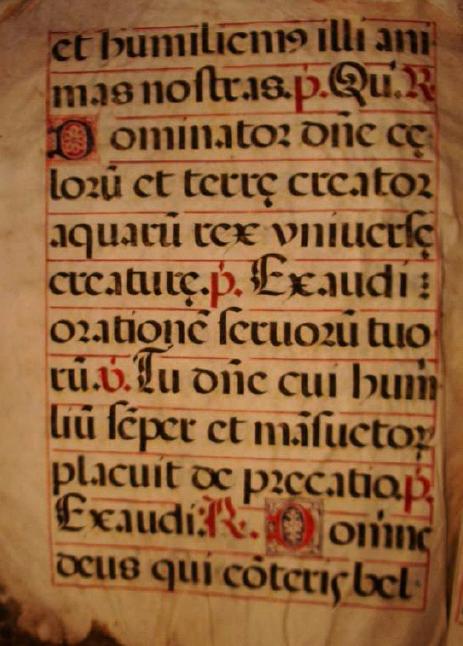 et humiliemꝰ illi ani
mas nostras. p̄. Qui. R
Dominator dñe cę
lorū et terrę creator
aquarū rex vniuersę
creaturę. p̄. Exaudi :
orationē seruorū tuo
rū. v̄. Tu dñe cui humi
liū sēper et māsuetoꝝ
placuit de precatio. p̄.
Exaudi. R. Domine
deus qui cōteris bel